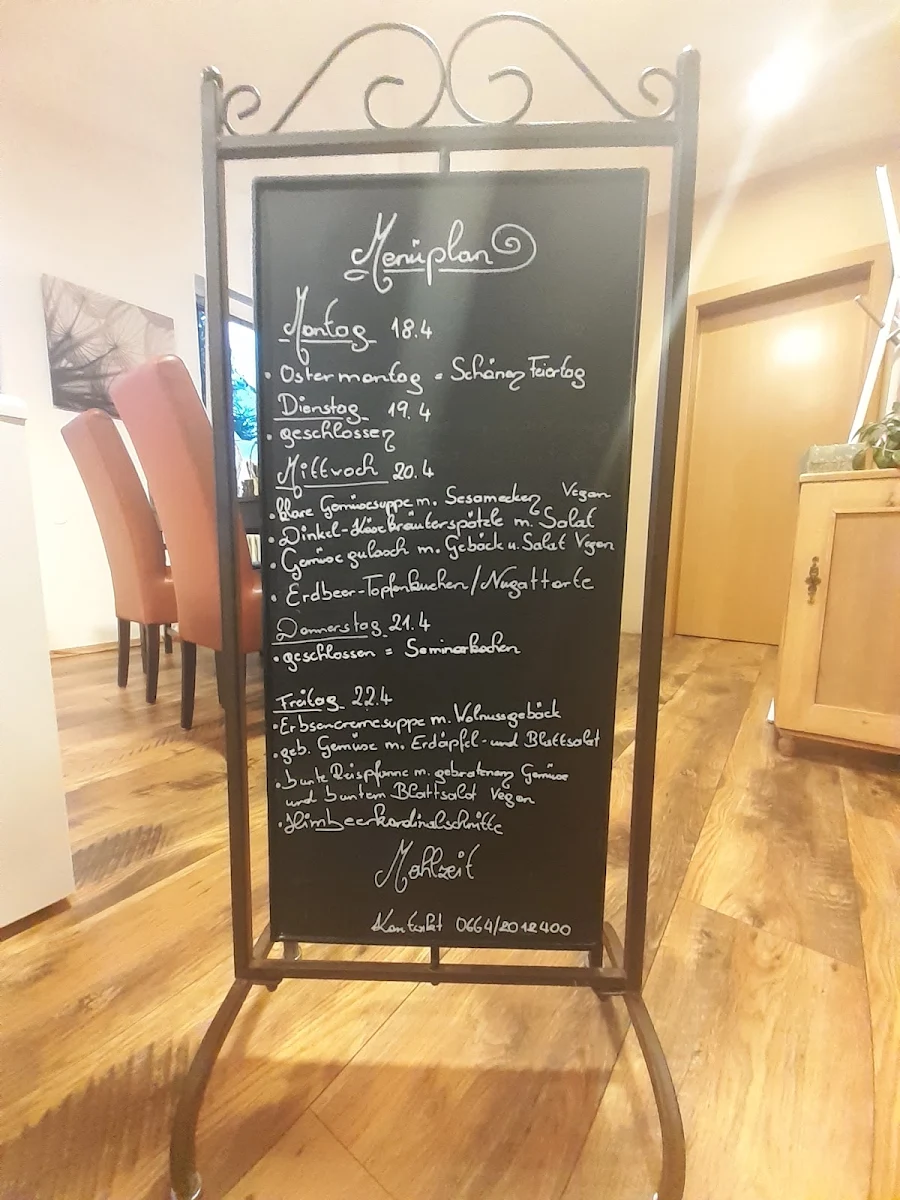 Menüplan
Montag 18.4
• Ostermontag = Schönen Feiertag
Dienstag 19.4
• geschlossen
Mittwoch 20.4
• klare Gemüsesuppe m. Sesamecken Vegan
• Dinkel-Käsekräuterspätzle m. Salat
• Gemüsegulasch m. Gebäck u. Salat Vegan
• Erdbeer-Topfenkuchen/Nugattorte
Donnerstag 21.4
• geschlossen = Seminarkochen
Freitag 22.4
• Erbsencremesuppe m. Walnussgebäck
• geb. Gemüse m. Erdäpfel- und Blattsalat
• bunte Reispfanne m. gebratenen Gemüse
und buntem Blattsalat Vegan
• Himbeerkardinalschnitte
Mahlzeit
Kontakt 0664/2012400